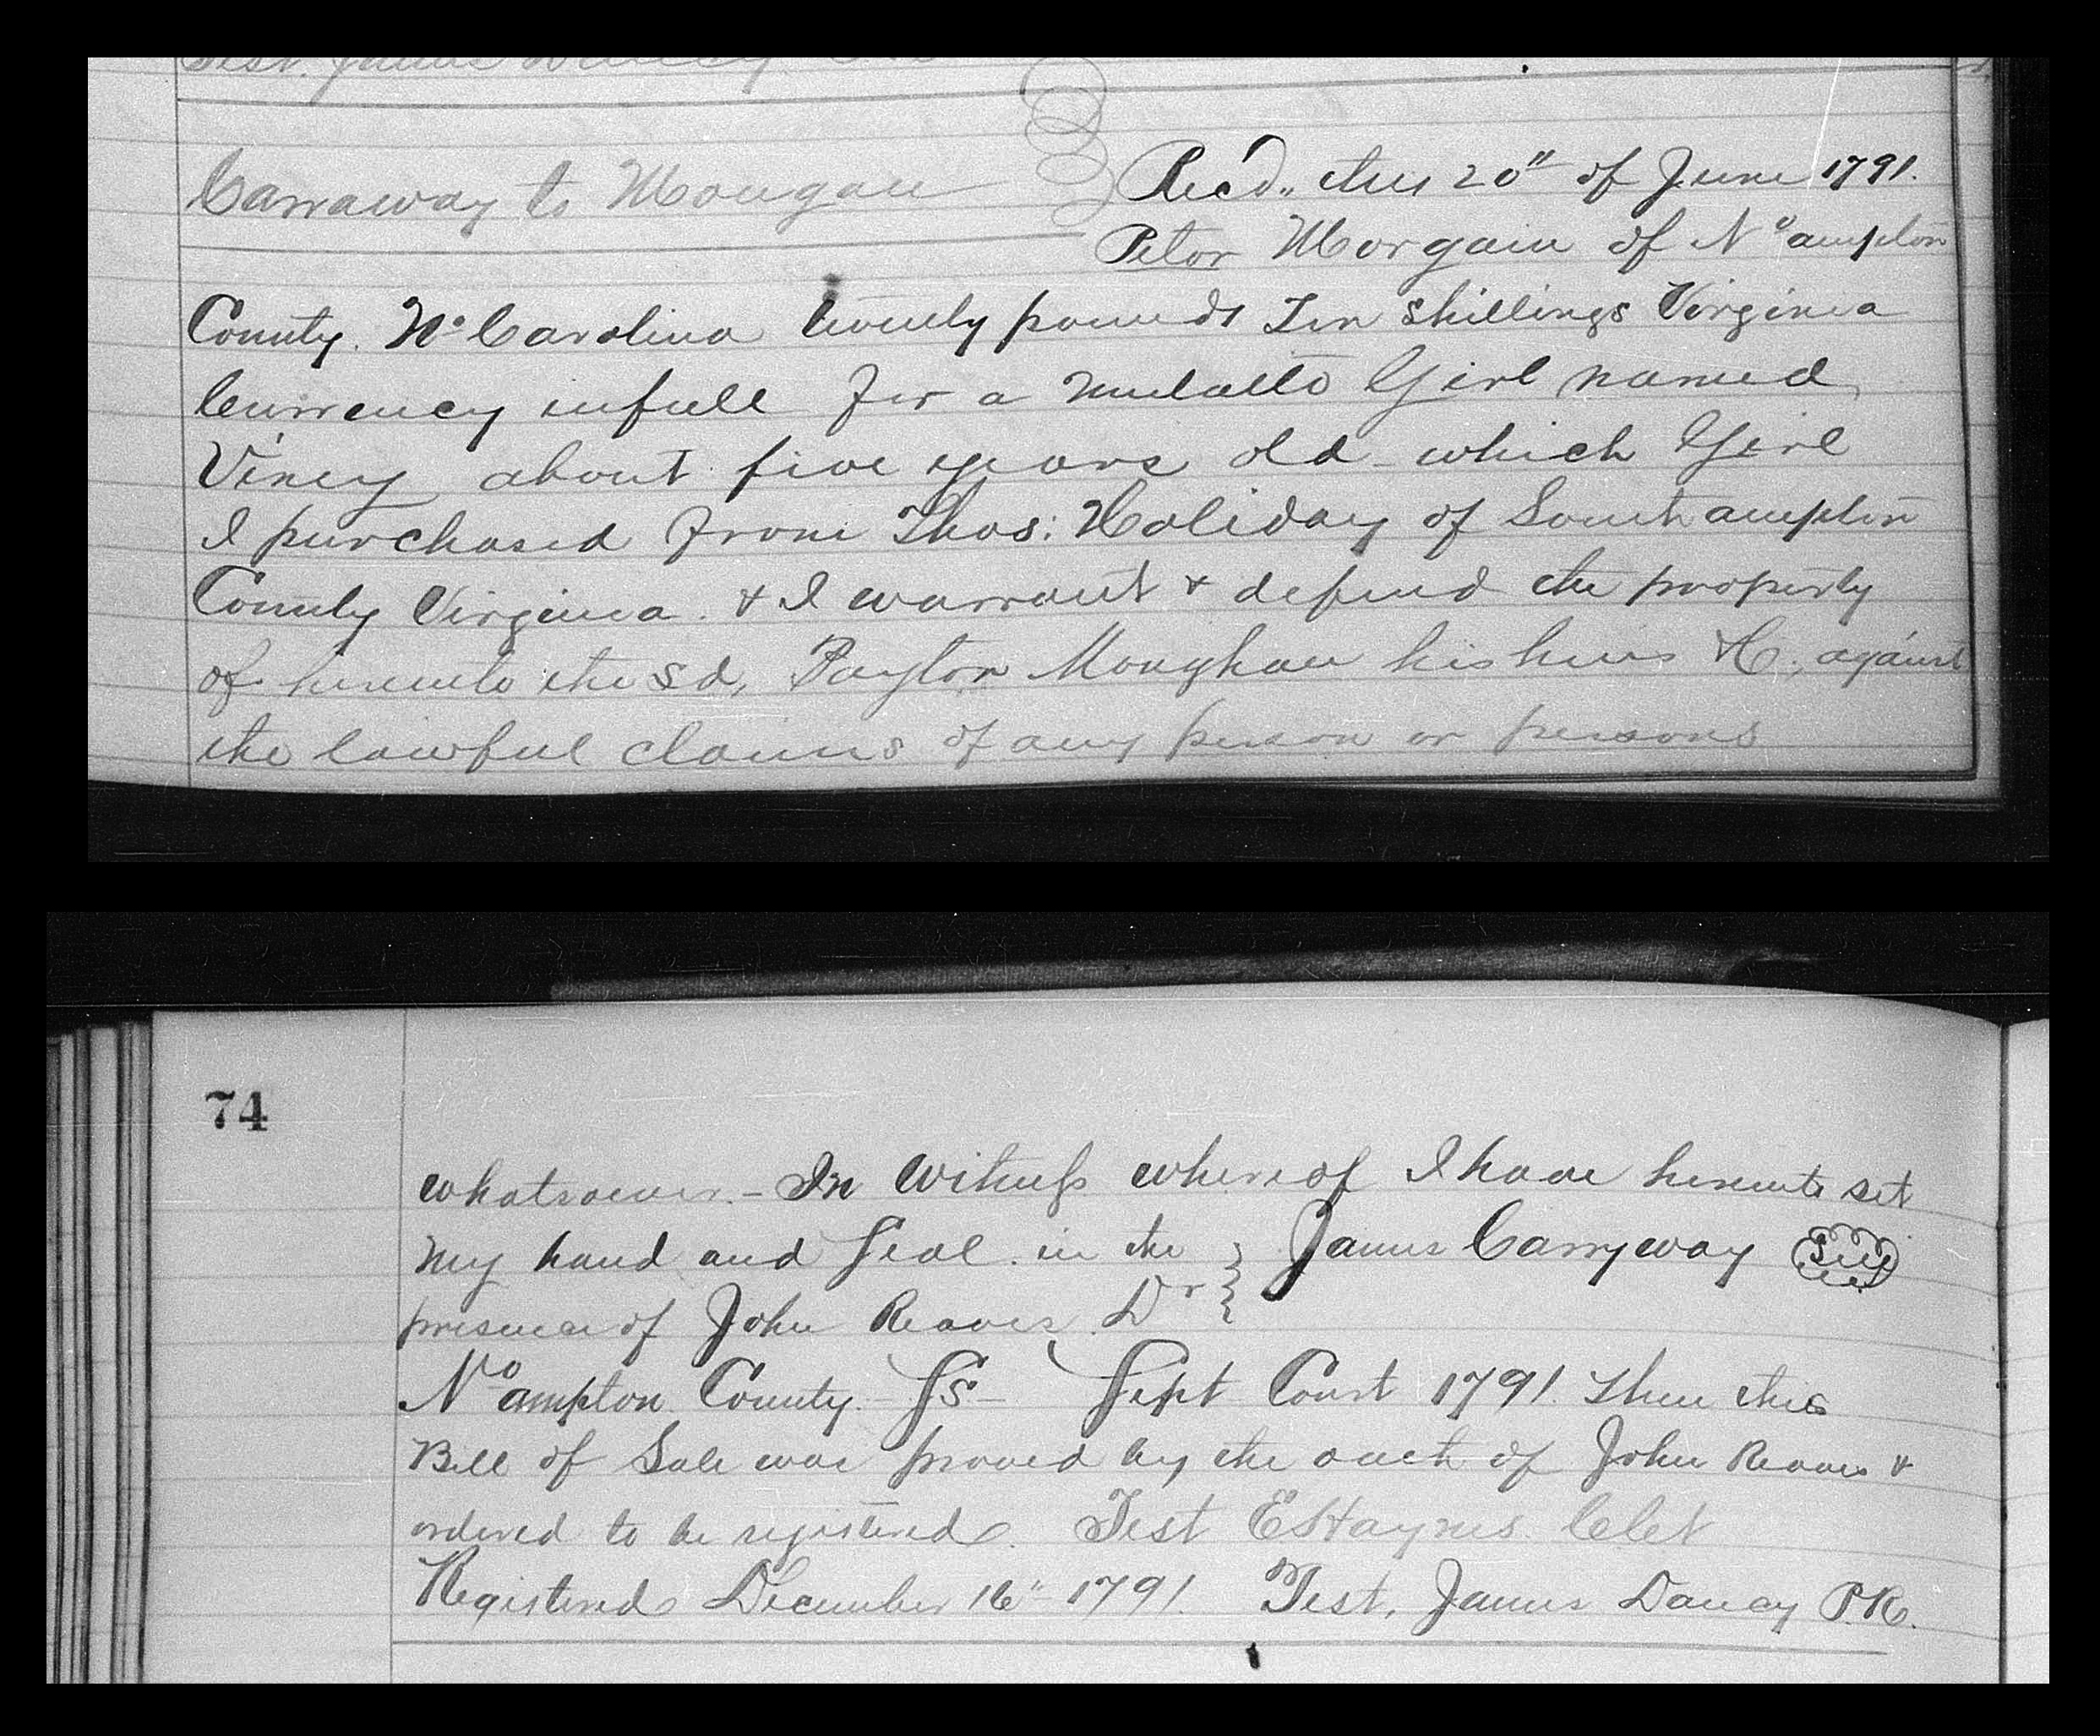 Test. James
Carraway to Mougan
Recd., this 20" of June 1791.
Peter Morgain of Nºampton
County. Nº Carolina twenty pounds Ten shillings Virginia
Currency infull for a Mulatto Girl named
Viney about five years old which Girl
I purchased from Thos: Holiday of Southampton
County Virginia. & I warrant & defend the property
of hereunto the sd, Payton Moughan his heirs &C, against
the lawful claims of any person or persons
74
whatsoever.- In Witness whereof I have hereunto set
My hand and Seal. in the } James Carryway Seal
presence of John Reaves Dr }
Nºampton County SS- Sept Court 1791. Then this
Bill of Sale was proved by the oath of John Reaves &
ordered to be registered. Test EHaynes Clet
Registered December 16" 1791. Test, James Dancy P.R.